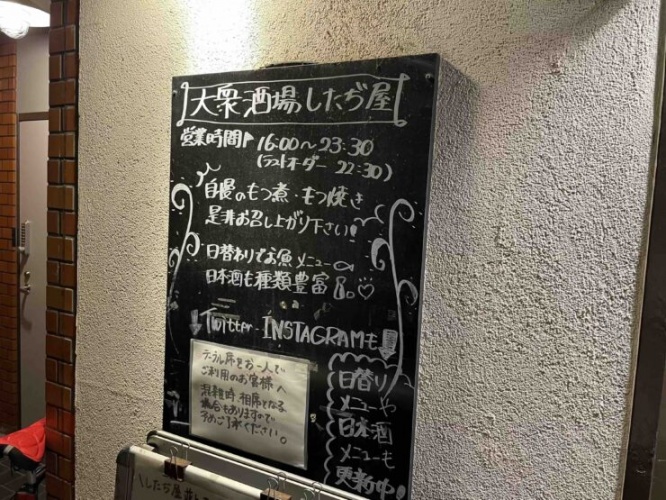 大衆酒場したぢ屋
営業時間 16:00〜23:30
(ラストオーダー 22:30)
自慢のもつ煮・もつ焼き
是非お召し上がり下さい!
日替わりでお魚メニュー
日本酒も種類豊富
Twitter INSTAGRAMも
テーブル席をお一人で
ご利用のお客様へ
混雑時、相席となる
場合もありますので
予めご了承ください。
日替り
メニューや
日本酒
メニューも
更新中!
したぢ屋